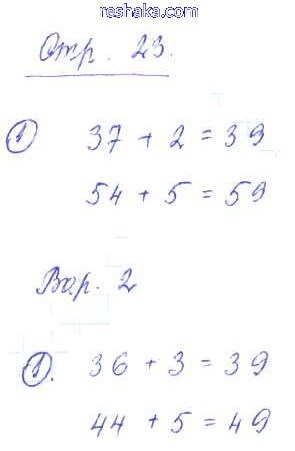 reshaka.com
Стр. 23.
① 37 + 2 = 39
54 + 5 = 59
Вар. 2
①. 36 + 3 = 39
44 + 5 = 49